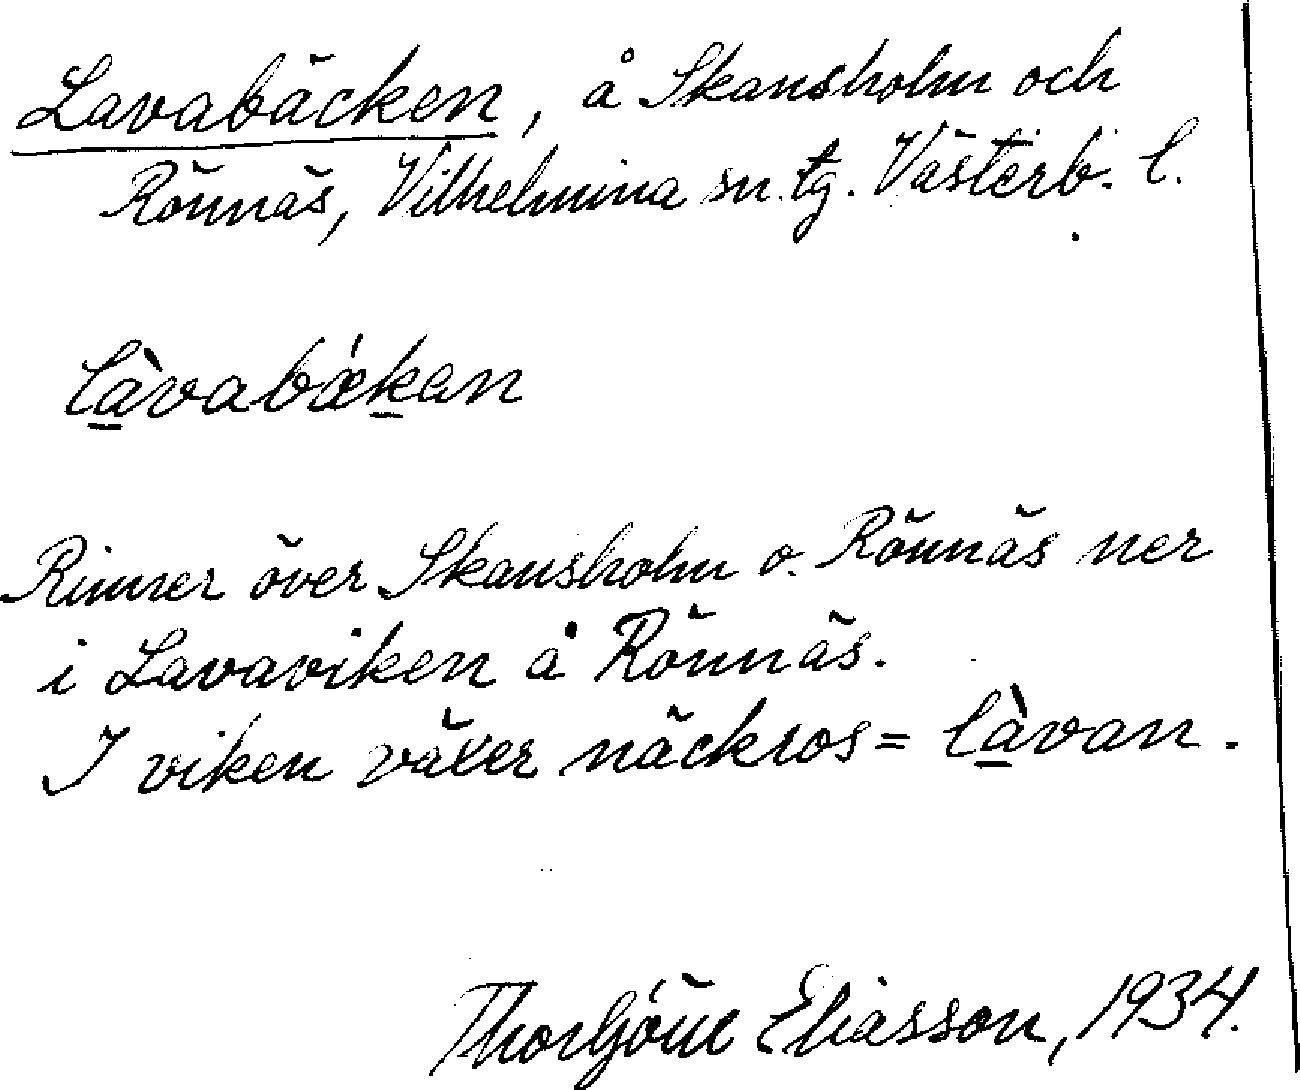 Lavabäcken, å Skansholm och
Rönnäs, Vilhelmina sn. tg. Västerb. l.
là̠vabǽk̠an
Rinner över Skansholm o. Rönnäs ner
i Lavaviken å Rönnäs.
I viken växer näckros = là̠van.
Eliasson, 1934.